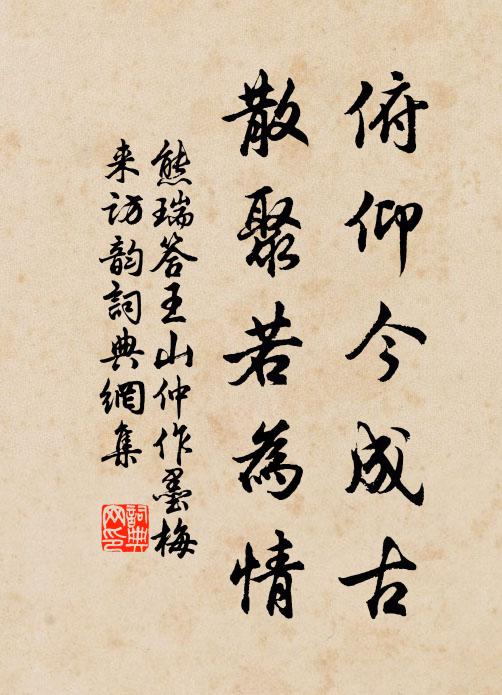 俯仰今成古
散聚若為情
熊瑞答王山仲作墨梅
来访韵詞典網集
詞典网印